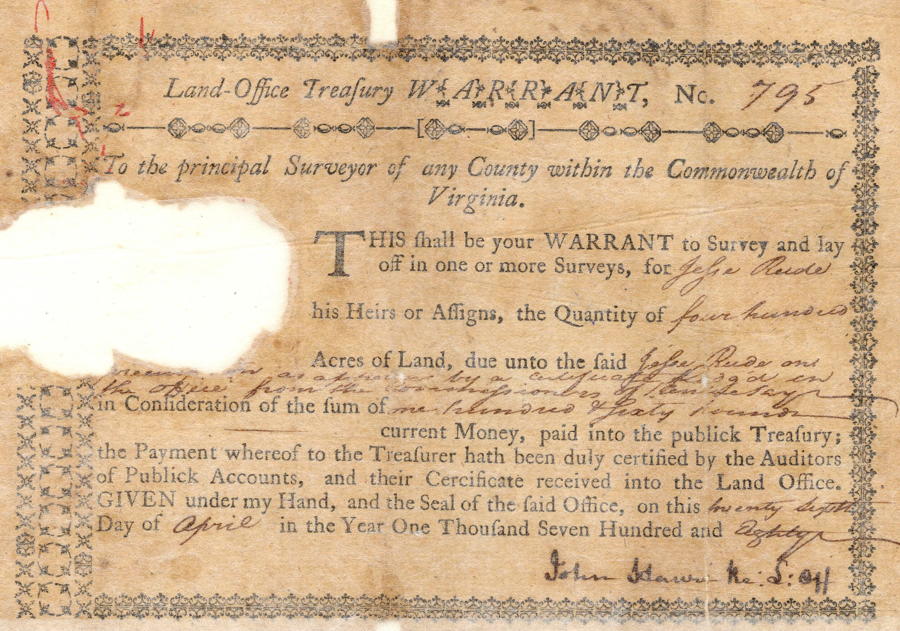 Land-Office Treaſury WARRANT, No. 795
To the principal Surveyor of any County within the Commonwealth of
Virginia.
THIS ſhall be your WARRANT to Survey and lay
off in one or more Surveys, for Jeſse Rude
his Heirs or Aſſigns, the Quantity of four hundred
Acres of Land, due unto the ſaid Jeſse Rude
by a certificate in
the office from the Commissioners of
in Conſideration of the ſum of one hundred & Sixty Pounds
current Money, paid into the publick Treaſury;
the Payment whereof to the Treaſurer hath been duly certified by the Auditors
of Publick Accounts, and their Cercificate received into the Land Office.
GIVEN under my Hand, and the Seal of the ſaid Office, on this twenty Sixth
Day of April in the Year One Thouſand Seven Hundred and Eighty
John